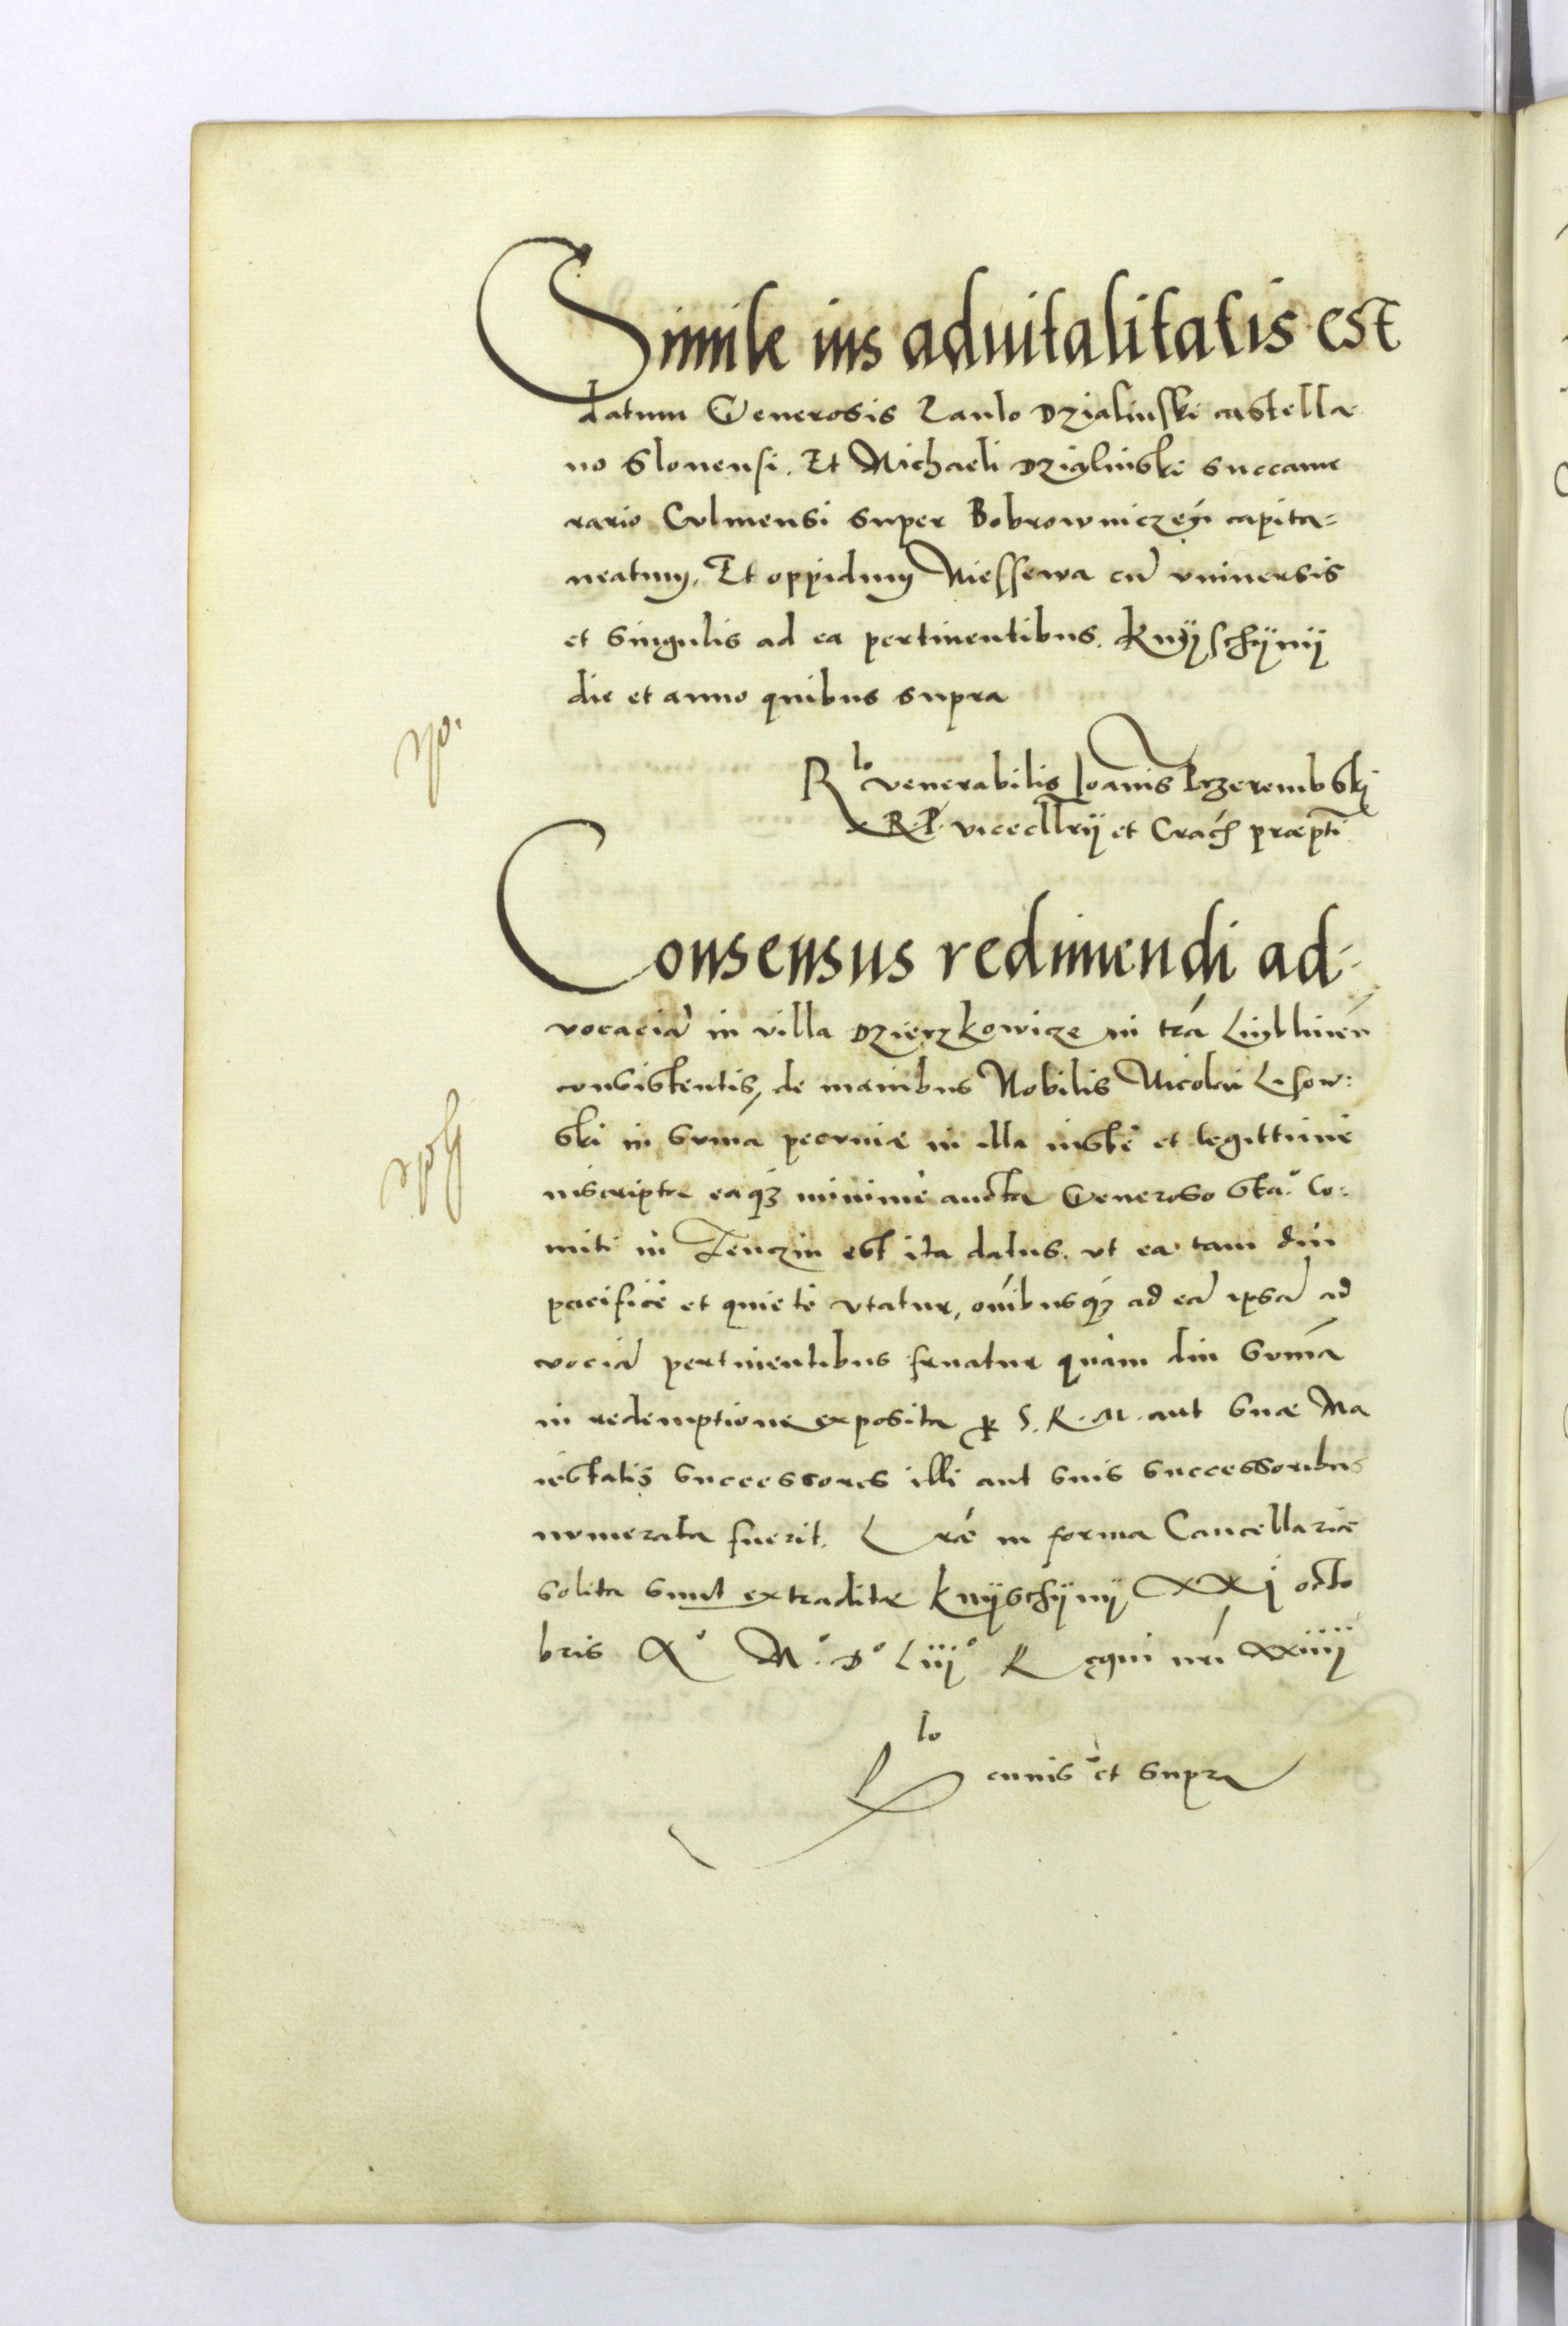 Simile ius aduitalitatis est
datum Generosis Paulo Dzialinski castella
no Slonensi. Et Michaeli Dzialinski succame
rario Culmensi super Bobrowniczeń capita=
neatum, Et oppidum Niessewa cū vniuersis
et singulis ad ea pertinentibus. Knÿschÿnÿ
die et anno quibus supra
Rlo venerabilis Ioannis Przerembski
R. P. vicecllrÿ et Crach præpti
Consensus redimendi ad-
vocaciā in villa Dzierzkowicze in trā Lublineń
consistentis, de manibus Nobilis Nicolai Lsow:
ski in suma pecuniæ in illa iustè et legittimè
inscripta eaq3 minimè aucta Generoso Sta. Co:
miti in Tenczin est ita datus. vt ea tam diu
pacificè et quietè vtatur, oībusq3 ad eā ipsā ad
vociā pertinentibus fruatur quàm diu sumā
in redemptione exposita p S. R. M. aut suæ Ma
iestatis successores illi aut suis successoribus
numerata fuerit. Lræ in forma Cancellariæ
solita sunt extraditæ Knÿschÿnÿ XXj octo
bris Aº Mº Dº Liijº Regni nri xxiiij
Rlo eiusd̄ ut supra